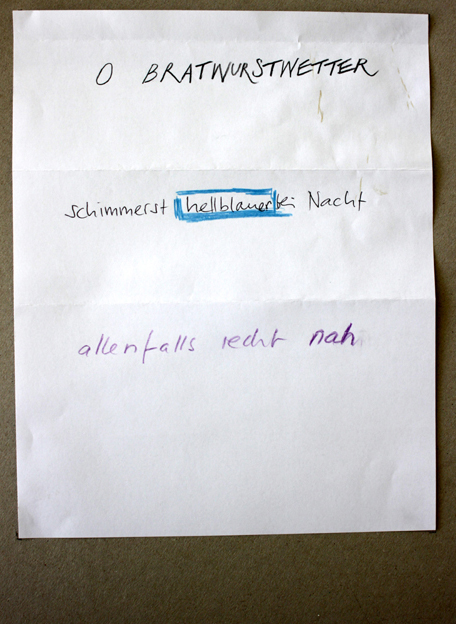 O BRATWURSTWETTER
schimmerst hellblauer bei Nacht
allenfalls recht nah